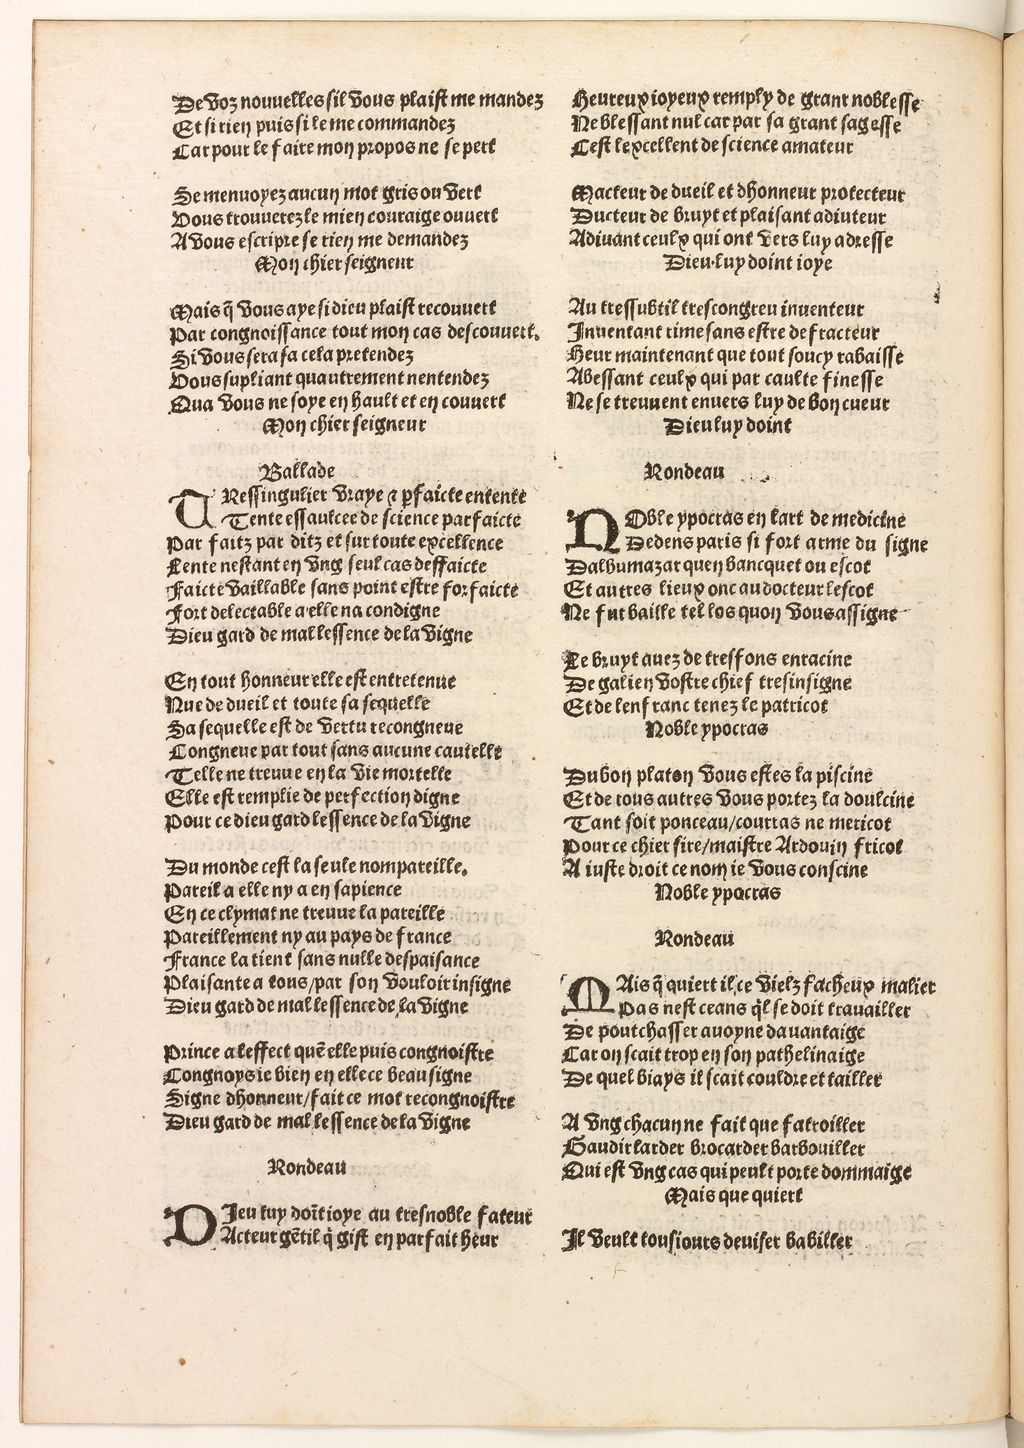 De voz nouuelles sil vous plaist me mandez
Et si rien puis si le me commandez
Car pour le faire mon propos ne se pert
Se menuoyez aucun mot gris ou vert
Vous trouuerez le mien couraige ouuert
A vous escripre se rien me demandez
Mon chier seigneur
Mais q̃ vous aye si dieu plaist recouuert
Par congnoissance tout mon cas descouuert.
Si vous sera sa cela pretendez
Vous supliant quautrement nentendez
Qua vous ne soye en hault et en couuert
Mon chier seigneur
Ballade
TRessingulier vraye ⁊ ꝑfaicte entente
Tente essaulcee de science parfaicte
Par faitz par ditz et sur toute excellence
Lente nestant en vng seul cas deffaicte
Faicte vaillable sans point estre forfaicte
Fort delectable a elle na condigne
Dieu gard de mal lessence de la vigne
En tout honneur elle est entretenue
Nue de dueil et toute sa sequelle
Sa sequelle est de vertu recongneue
Congneue par tout sans aucune cautelle
Telle ne treuue en la vie mortelle
Elle est remplie de perfection digne
Pour ce dieu gard lessence de la vigne
Du monde cest la seule nompareille.
Pareil a elle ny a en sapience
En ce clymat ne treuue la pareille
Pareillement ny au pays de france
France la tient sans nulle despaisance
Plaisante a tous/par son vouloir insigne
Dieu gard de mal lessence de la vigne
Prince a leffect quẽ elle puis congnoistre
Congnoys ie bien en elle ce beau signe
Signe dhonneur/fait ce mot recongnoistre
Dieu gard de mal lessence de la vigne
Rondeau
DIeu luy doĩt ioye au tresnoble fateur
Acteur gẽtil q̃ gist en parfait heur
Heureux ioyeux remply de grant noblesse
Ne blessant nul car par sa grant sagesse
Cest lexcellent de science amateur
Macteur de dueil et dhonneur protecteur
Ducteur de bruyt et plaisant adiuteur
Adiuant ceulx qui ont vers luy adresse
Dieu luy doint ioye
Au tressubtil trescongreu inuenteur
Inuentant rime sans estre defracteur
Heur maintenant que tout soucy rabaisse
Abessant ceulx qui par caulte finesse
Ne se treuuent enuers luy de bon cueur
Dieu luy doint
Rondeau
NOble ypocras en lart de medicine
Dedens paris si fort arme du signe
Dalbumazar quen bancquet ou escot
Et autres lieux onc au docteur lescot
Ne fut baille tel los quon vous assigne
Le bruyt auez de tresfons enracine
De galien vostre chief tresinsigne
Et de lenfranc tenez le patricot
Noble ypocras
Du bon platon vous estes la piscine
Et de tous autres vous portez la doulcine
Tant soit ponceau/courras ne mericot
Pour ce chier sire/maistre Ardouin fricot
A iuste droit ce nom ie vous conscine
Noble ypocras
Rondeau
MAis q̃ quiert il ce vielz facheux malier
Pas nest ceans q̃l se doit trauailler
De pourchasser auoyne dauantaige
Car on scait trop en son pathelinaige
De quel biays il scait couldre et tailler
A vng chacun ne fait que fatroiller
Gaudir larder brocarder barbouiller
Qui est vng cas qui peult porte dommaige
Mais que quiert
Il veult tousiours deuiser babiller